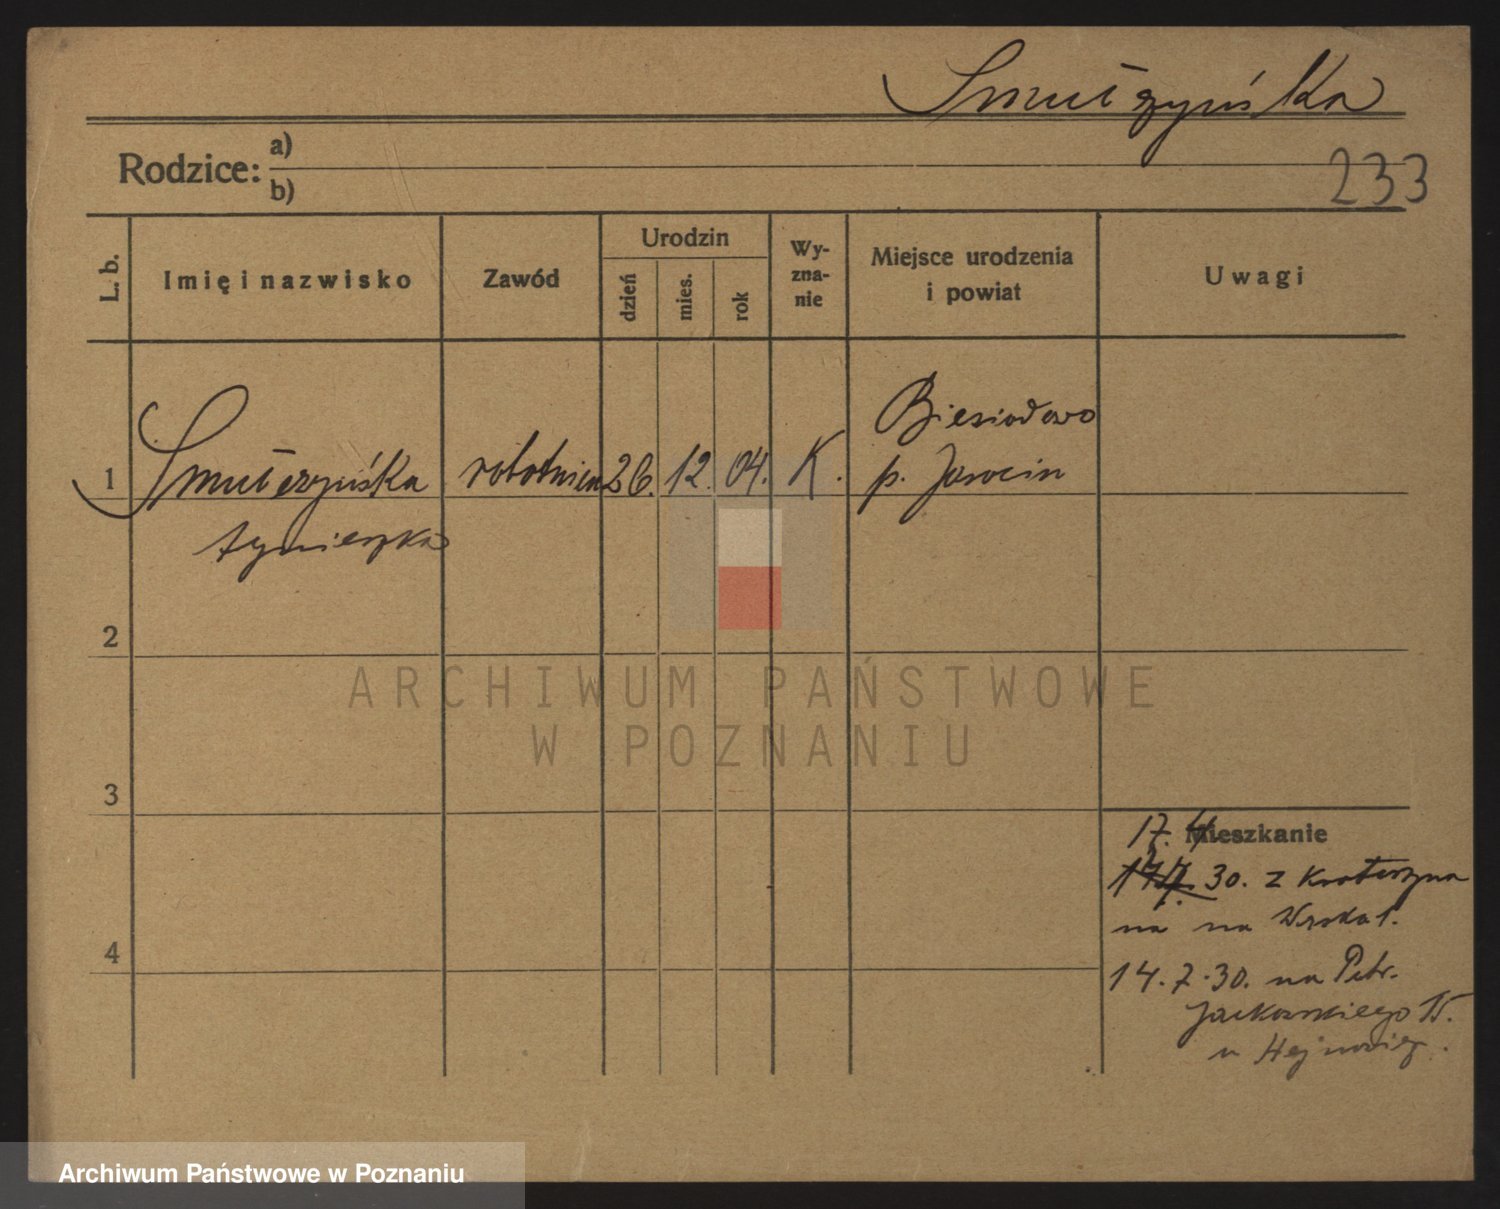 Smulczyńska
Rodzice: a)
b)
233
L. b.
Imię i nazwisko
Zawód
Urodzin
dzień
mies.
rok
Wy-
zna-
nie
Miejsce urodzenia
i powiat
Uwagi
1
Smulczyńska
Agnieszka
26. 12. 04. K.
Biesiadowo
p. Jarocin
2
3
4
Mieszkanie
17. 4.
30. z Katarzyna
na na
14. 7. 30. na Piotr.
Jackowskiego 15.
u
ARCHIWUM PAŃSTWOWE
W POZNANIU
Archiwum Państwowe w Poznaniu